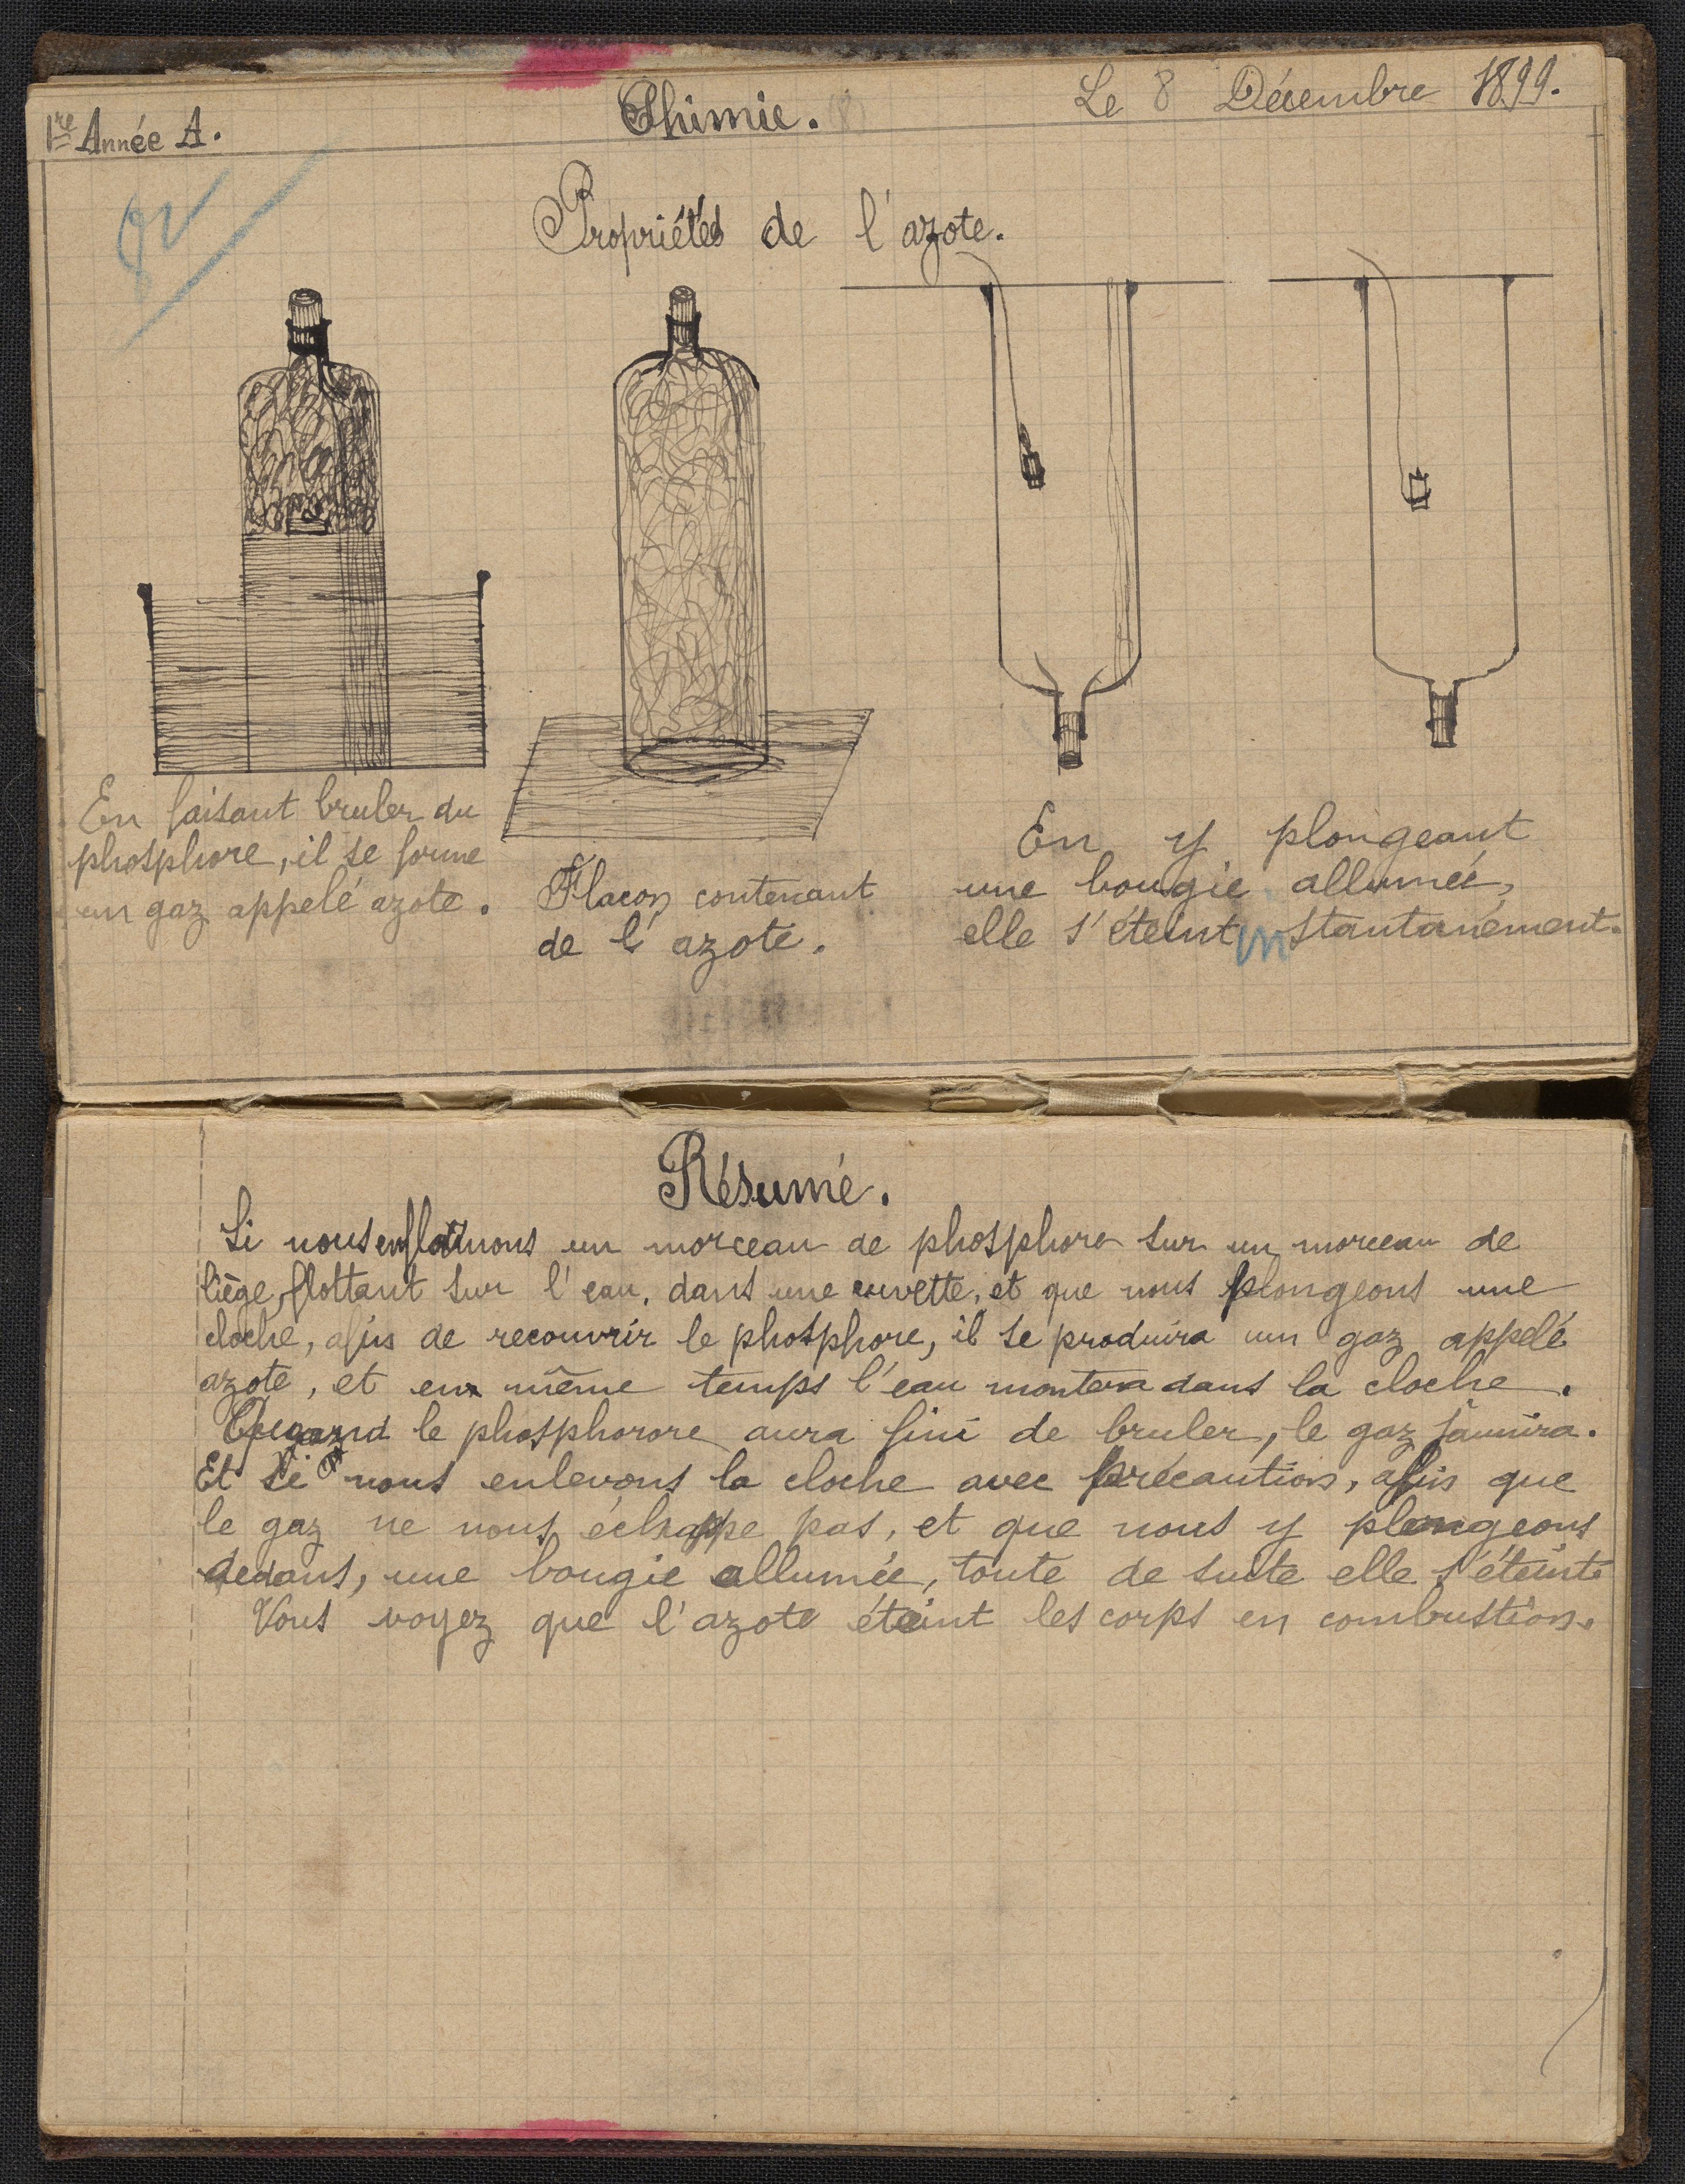 1re Année A.
Chimie.
Le 8 Décembre 1899.
Propriétés de l'azote.
En faisant bruler du
phosphore, il se forme
un gaz appelé azote.
Flacon contenant
de l'azote.
En y plongeant
une bougie allumée,
elle s'éteint instantanément.
Résumé.
Si nous enflammons un morceau de phosphore sur un morceau de
liège, flottant sur l'eau, dans une cuvette, et que nous plongeons une
cloche, afin de recouvrir le phosphore, il se produira un gaz appelé
azote, et en même temps l'eau montera dans la cloche.
Quand le phosphorore aura fini de bruler, le gaz jaunira.
Et si nous enlevons la cloche avec précaution, afin que
le gaz ne nous échappe pas, et que nous y plongeons
dedans, une bougie allumée, toute de suite elle s'éteint.
Vous voyez que l'azote éteint les corps en combustion.